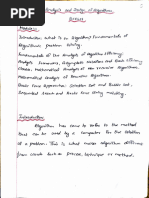 Analysis and Design of Algorithms
BCS401
Module-1
Introduction: What is an Algorithm? Fundamentals of
Algorithmic problem solving.
Fundamentals of the Analysis of Algorithm Efficiency:
Analysis Framework, Asymptotic Notations and Basic Efficiency
classes, Mathematical Analysis of Non-recursive Algorithms,
Mathematical Analysis of Recursive Algorithms.
Brute Force Approaches: Selection Sort and Bubble Sort,
Sequential Search and Brute Force String Matching.
Introduction:
Algorithm has come to refer to the method
that can be used by a computer for the solution
of a problem. This is what makes algorithm different
from words such as process, technique or method.